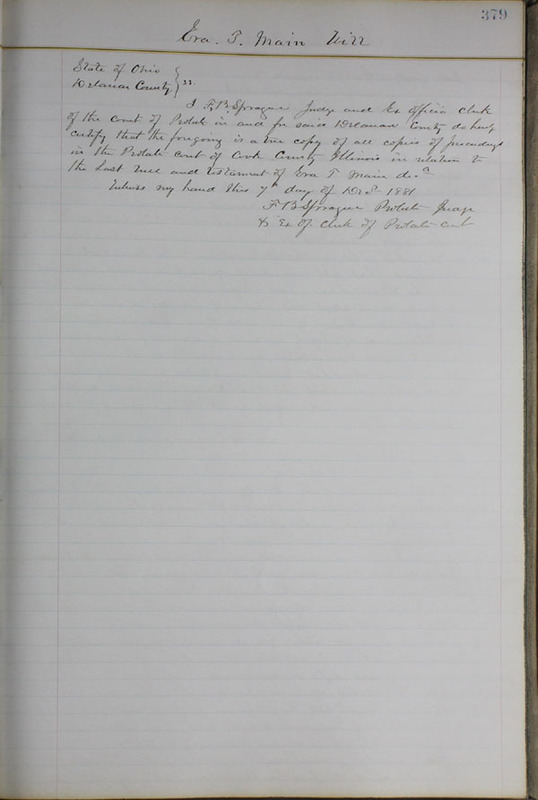 379
Eva. T. Main Will
State of Ohio
Delaware County } ss.
I F. B. Sprague Judge and Ex officio clerk
of the court of Probate in and for said Delaware County do hereby
certify that the foregoing is a true copy of all copies of proceedings
in the Probate court of Cook County Illinois in relation to
the Last Will and Testament of Eva T Main dec.d
Witness my hand this 7th day of Dec. 1881
F B Sprague Probate Judge
& Ex Of. clerk of Probate court